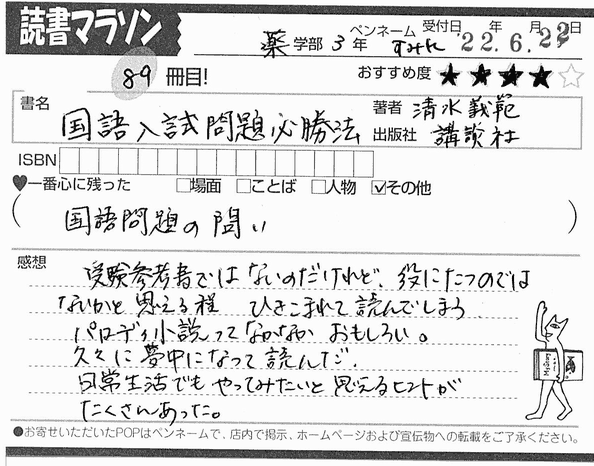 読書マラソン
ペンネーム 受付日 年 月 日
薬 学部 3 年 すみれ '22.6.22
89 冊目!
おすすめ度 ★★★★☆
書名 国語入試問題必勝法
著者 清水義範
出版社 講談社
ISBN
♥一番心に残った □場面 □ことば □人物 ☑その他
(国語問題の問い)
感想
受験参考書ではないのだけれど、役にたつのでは
ないかと思える程 ひきこまれて読んでしまう
パロディ小説ってなかなか おもしろい。
久々に夢中になって読んだ。
日常生活でもやってみたいと思えるヒントが
たくさんあった。
●お寄せいただいたPOPはペンネームで、店内で掲示、ホームページおよび宣伝物への転載をご了承ください。